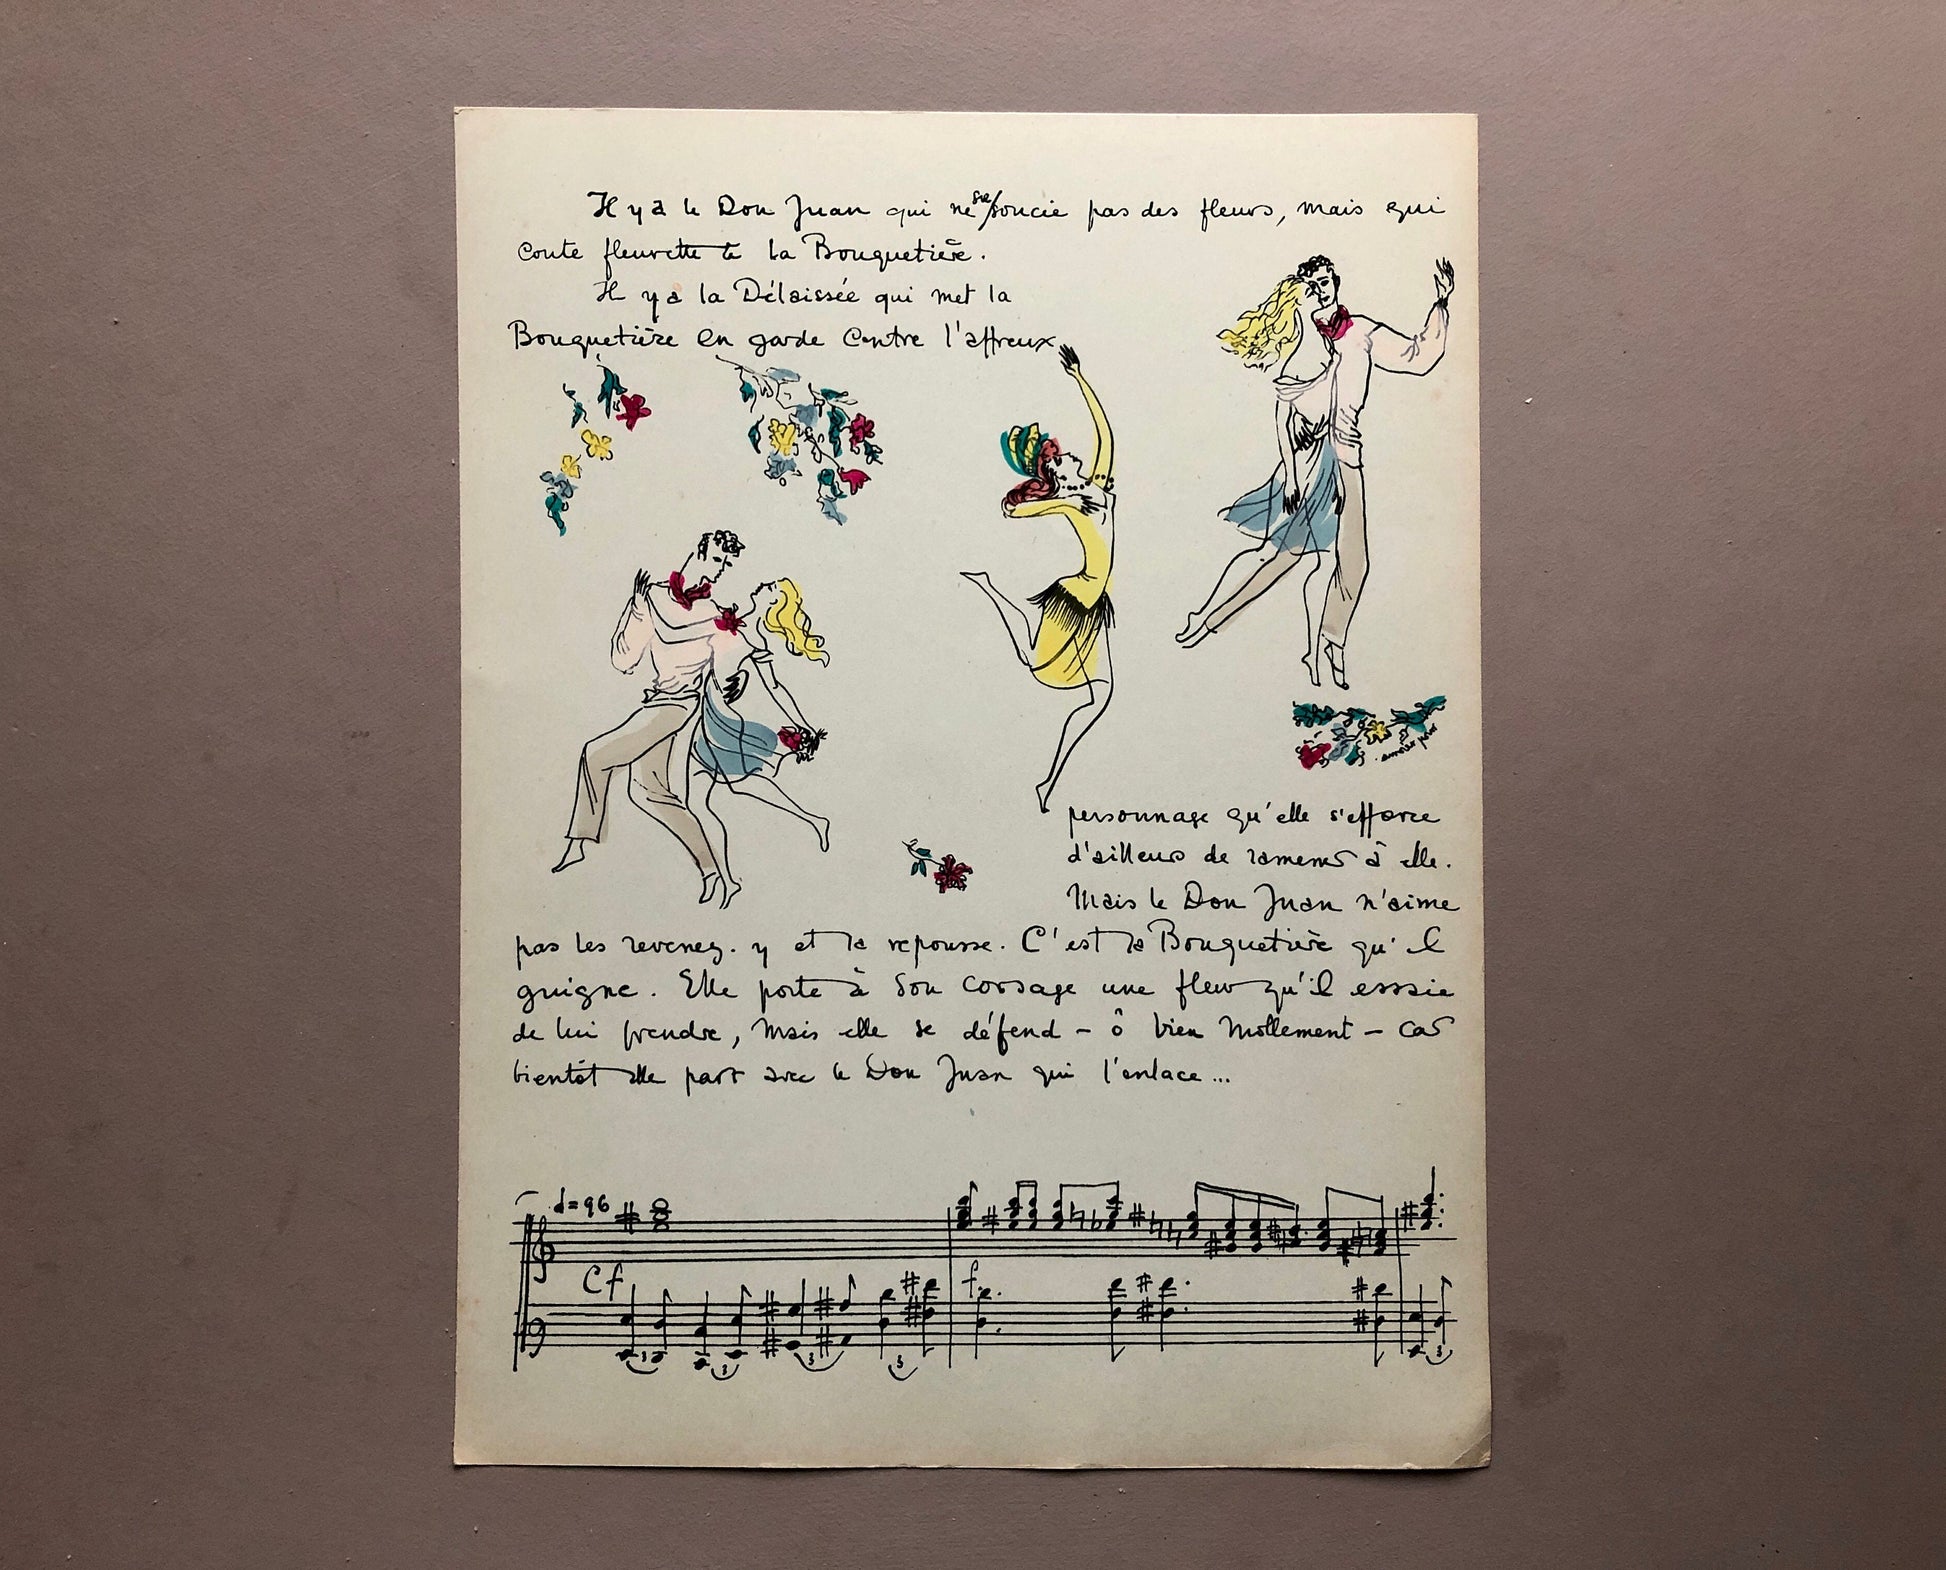 Il y a le Don Juan qui ne se soucie pas des fleurs, mais qui
conte fleurette à la Bouquetière.
Il y a la Délaissée qui met la
Bouquetière en garde contre l'affreux
personnage qu'elle s'efforce
d'ailleurs de ramener à elle.
Mais le Don Juan n'aime
pas les revenez-y et la repousse. C'est la Bouquetière qu'il
guigne. Elle porte à son corsage une fleur qu'il essaie
de lui prendre, mais elle se défend - ô bien mollement - car
bientôt elle part avec le Don Juan qui l'enlace...
=96
C f
f
3 3 3 3 3